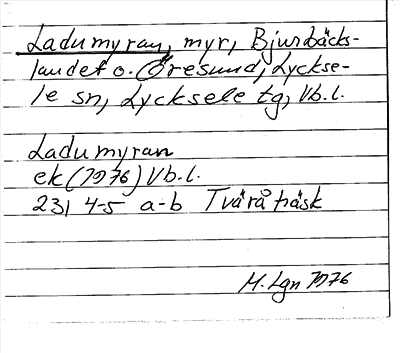 Ladumyran, myr, Bjurbäcks-
landet o. Öresund, Lyckse-
le sn, Lycksele tg, Vb.l.
Ladumyran
ek (1976) Vb.l.
23I 4-5 a-b Tväråträsk
M. Lgn 1976